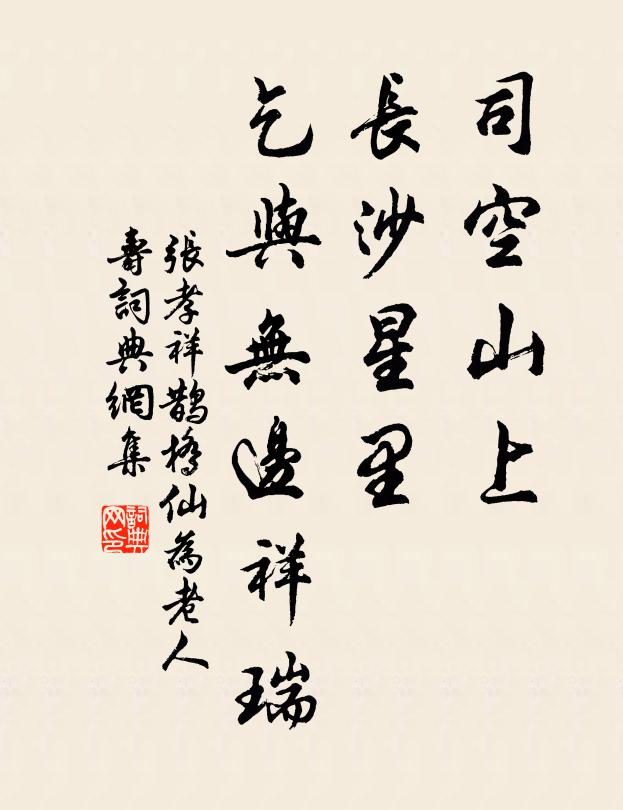 司空山上
長沙星里
乞與無邊祥瑞
張孝祥鵲橋仙為老人
壽詞典網集
詞典網印